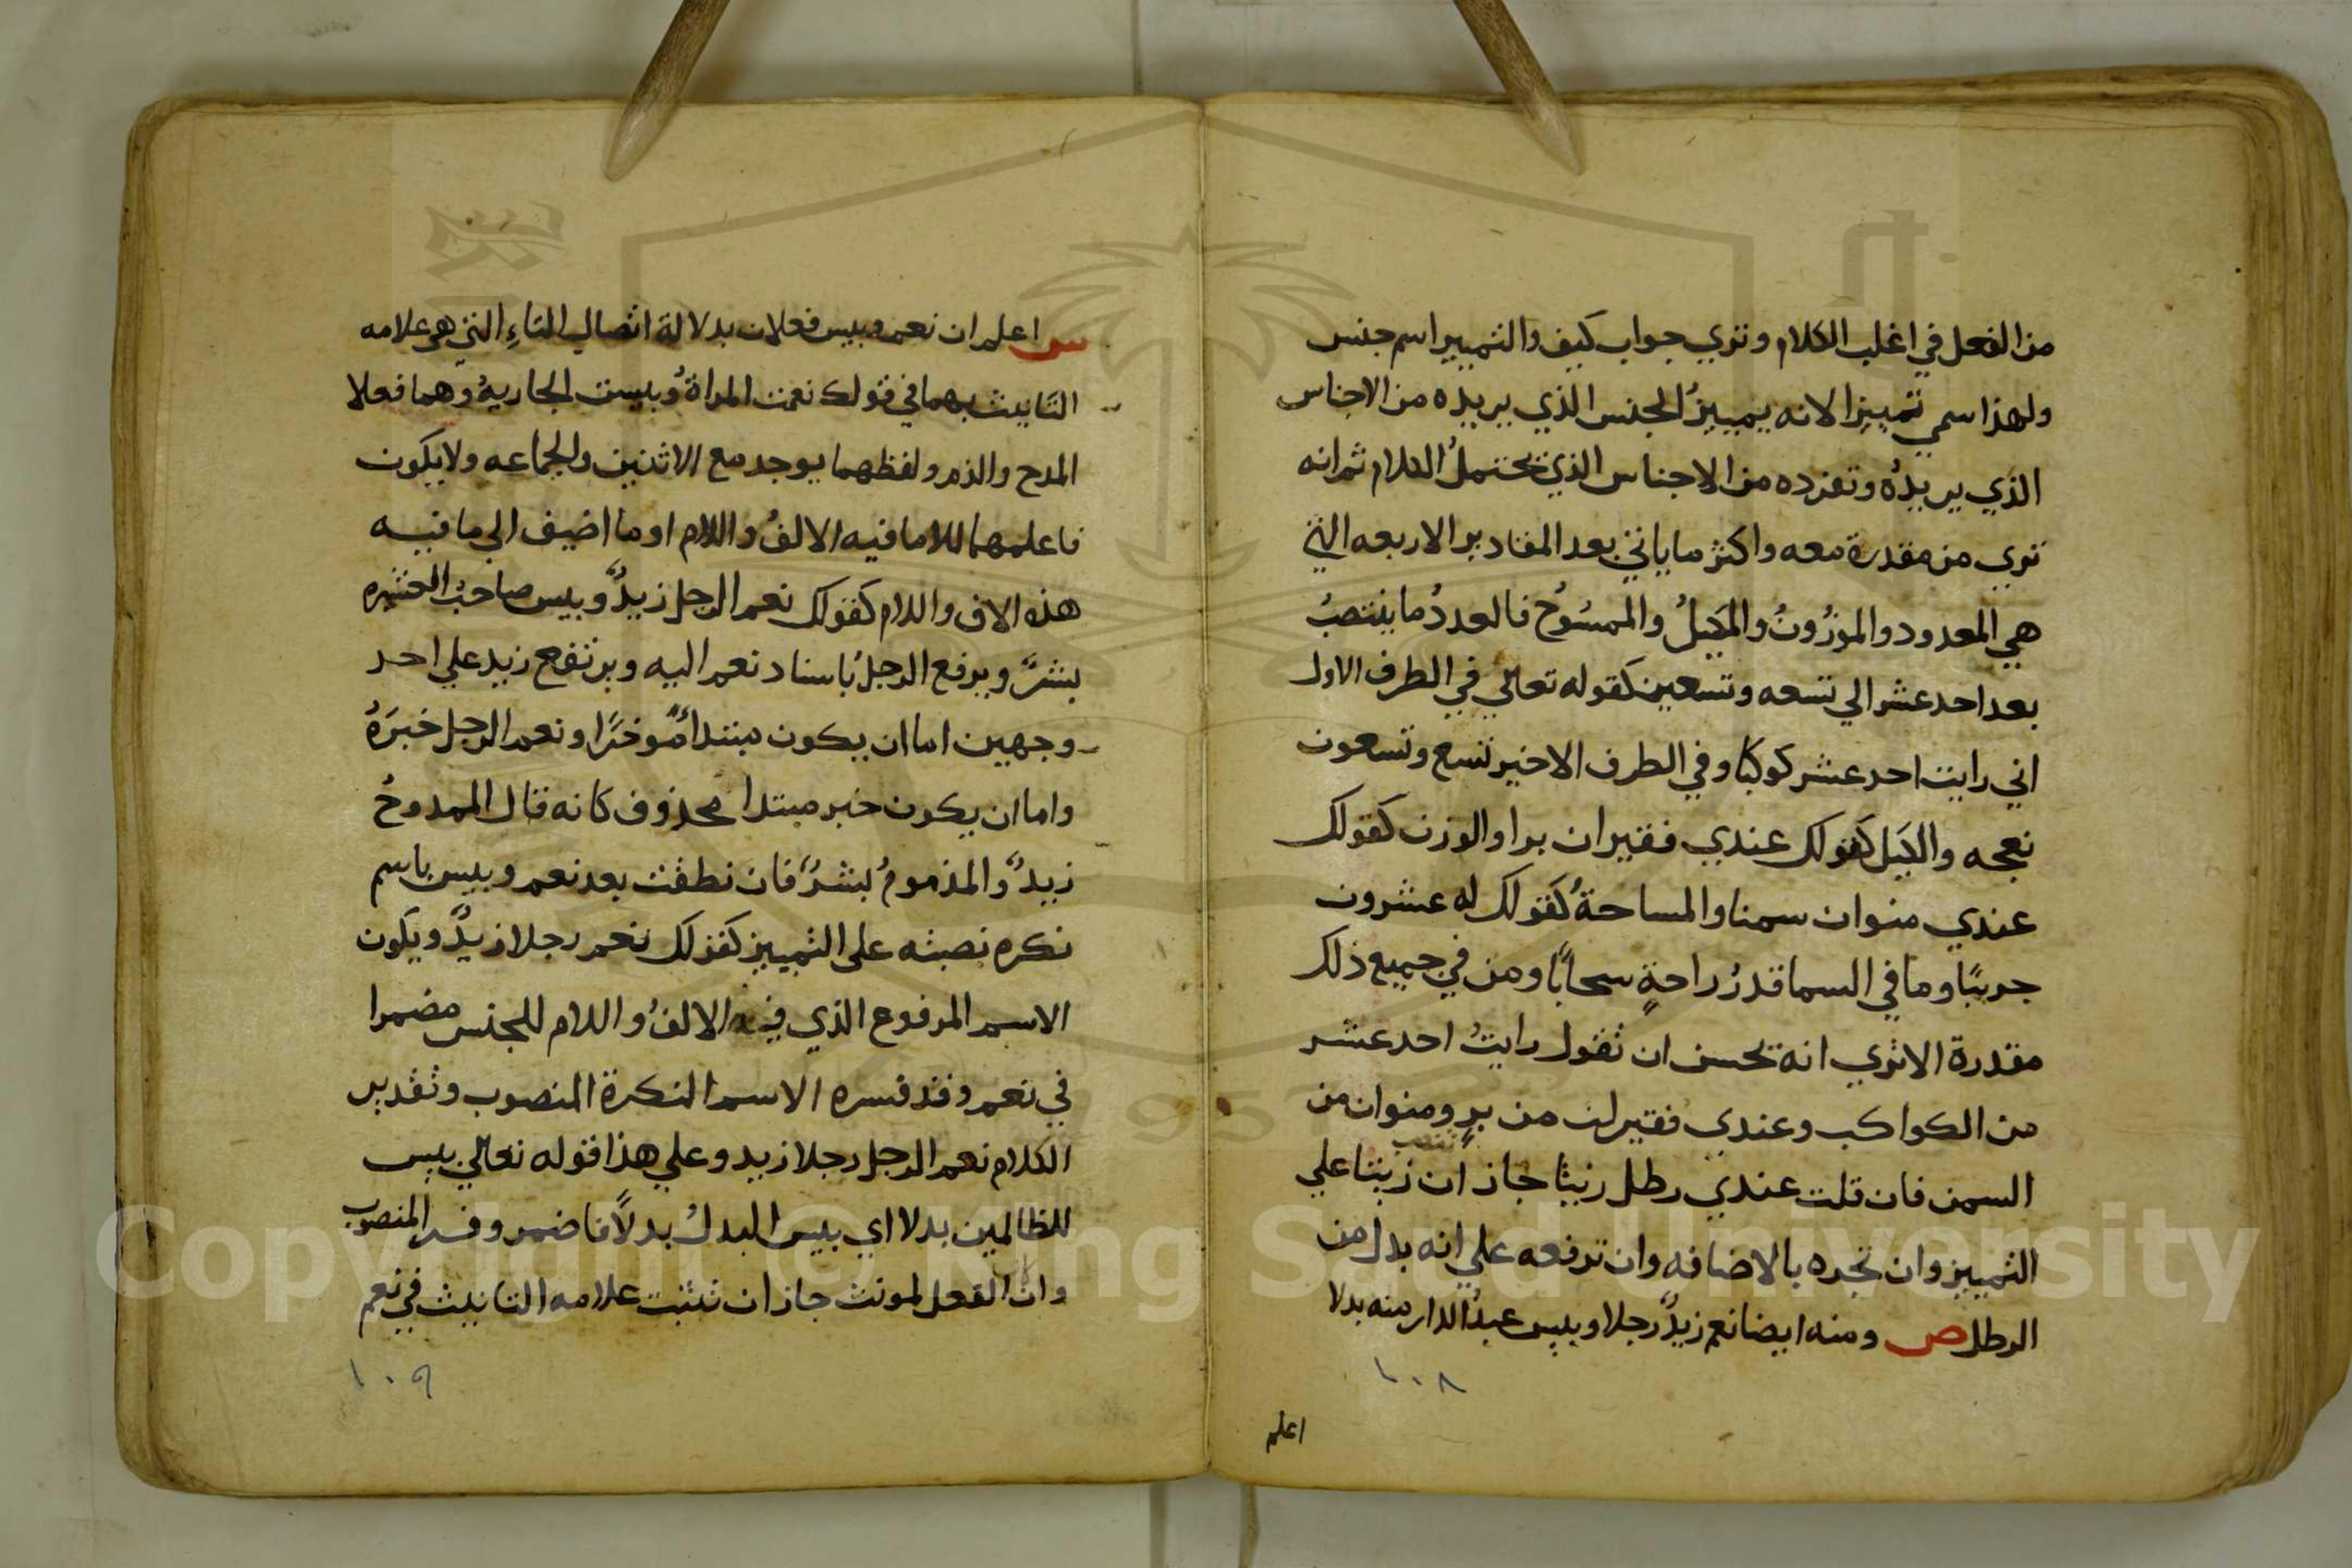 من الفعل في اغلب الكلام وتري جواب كيف والتمييز اسم جنس
ولهذا سمي تمييزا لانه يمييز الجنس الذي يريده من الاجناس
الذي يريده وتفرده من الاجناس الذي يحتمل الكلام ثم انه
تري من مقدرة معه واكثر ما ياتي بعد المقادير الاربعه التي
هي المعدود والموزُونُ والمَكيلُ والممسُوحُ فالعددُ ما ينتصبُ
بعد احد عشر الي تسعه وتسعين كقوله تعالي في الطرف الاول
اني رايت احد عشر كوكبا وفي الطرف الاخير تسع وتسعون
نعجه والكيل كقولك عندي قفيزان برا والوزن كقولك
عندي منوان سمنا والمساحةُ كقولك له عشرون
جريبًا وما في السما قدرُ راحةٍ سحابًا ومن في جميع ذلك
مقدرة الا تري انه يحسن ان تقول رايتُ احد عشر
من الكواكب وعندي قفيزان من برٍ ومنوان من
السمن فان قلت عندي رطل زيتا جاز ان تنصب زيتا علي
التمييز وان تجره بالاضافه وان ترفعه علي انه بدل من
الرطل ص ومنه ايضا نعم زيدٌ رجلا وبيس عبدُ الدار منه بدلا
١٠٨
اعلم
س اعلم ان نعم وبيس فعلان بدلالة اتصال التاءِ التي هي علامه
التانيث بهما في قولك نعمت المراةُ وبيست الجاريةُ وهما فعلا
المدح والذم ولفظهما يوجد مع الاثنين والجماعه ولا يكون
فاعلهما الا ما فيه الالفُ واللام او ما اضيف الي ما فيه
هذه الاف واللام كقولك نعم الرجل زيدٌ وبيس صاحبُ العشيره
بشرٌ ويرفع الرجلُ باسناد نعم اليه ويرتفع زيد علي احد
وجهين اما ان يكون مبتداً مُوخرًا ونعم الرجل خبرَهُ
واما ان يكون خبر مبتدا محذوف كانه قال الممدوحُ
زيدٌ والمذمومُ بشرٌ فان نطقت بعد نعم وبيس باسم
نكره نصبته علي التمييز كقولك نعم رجلا زيدٌ ويكون
الاسم المرفوع الذي فيه الالفُ واللام للجنس مضمرا
في نعم وقد فسره الاسم النكرة المنصوب وتقدير
الكلام نعم الرجل رجلا زيد وعلي هذا قوله تعالي بيس
للظالمين بدلا اي بيس البدلُ بدلاً فاضمر وفسر المنصوب
وان الفعل لمونث جاز ان تثبت علامه التانيث في نعم
١٠٩
Copyright © King Saud University
1957